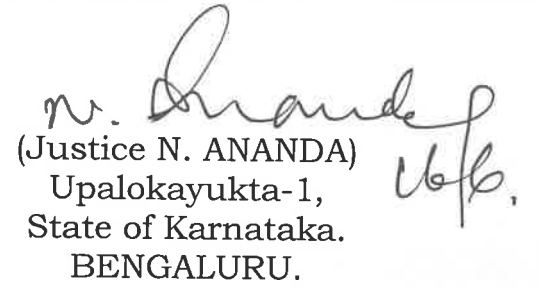 N. Ananda
(Justice N. ANANDA)
Upalokayukta-1,
State of Karnataka.
BENGALURU.